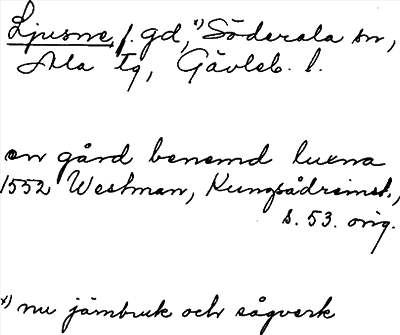 Ljusne, f. gd, x) Söderala sn,
Ala tg, Gävleb. l.
en gård benemd lusna
1552 Westman, Kungsådreinst.,
s. 53. orig.
x) nu järnbruk och sågverk